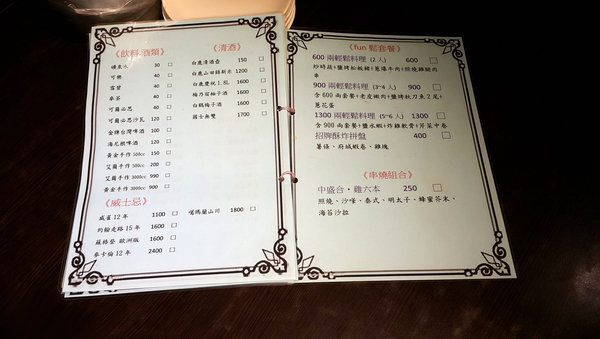 《飲料.酒類》
礦泉水 30
可樂 40
雪碧 40
麥茶 40
可爾必思 40
可爾必思沙瓦 120
金牌台灣啤酒 100
海尼根啤酒 120
黃金手作 500cc 150
艾爾手作 500cc 200
艾爾手作 3000cc 990
黃金手作 3000cc 900
《清酒》
白鹿清酒壺 150
白鹿山田錦新米 1200
白鹿慶祝 1.8L 1600
梅乃宿柚子酒 1600
白鶴梅子酒 1600
國士無雙 1700
《威士忌》
威雀 12 年 1100
約翰走路 15 年 1600
蘇格登 歐洲版 1600
麥卡倫 12 年 2400
噶瑪蘭山川 1800
《fun 鬆套餐》
600 兩輕鬆料理 (2 人) 600
炒時蔬+鹽烤松板豬+蔥爆牛肉+照燒雞腿肉
串
900 兩輕鬆料理 (3~4 人) 900
含 600 兩套餐+老皮嫩肉+鹽烤秋刀魚 2 尾+
蔥花蛋
1300 兩輕鬆料理 (5~6 人) 1300
含 900 兩套餐+鹽水蝦+炸雞軟骨+芹菜中卷
招牌酥炸拼盤 400
薯條、府城蝦卷、雞塊
《串燒組合》
中盛合・雞六本 250
照燒、沙嗲、泰式、明太子、蜂蜜芥末、
海苔沙拉